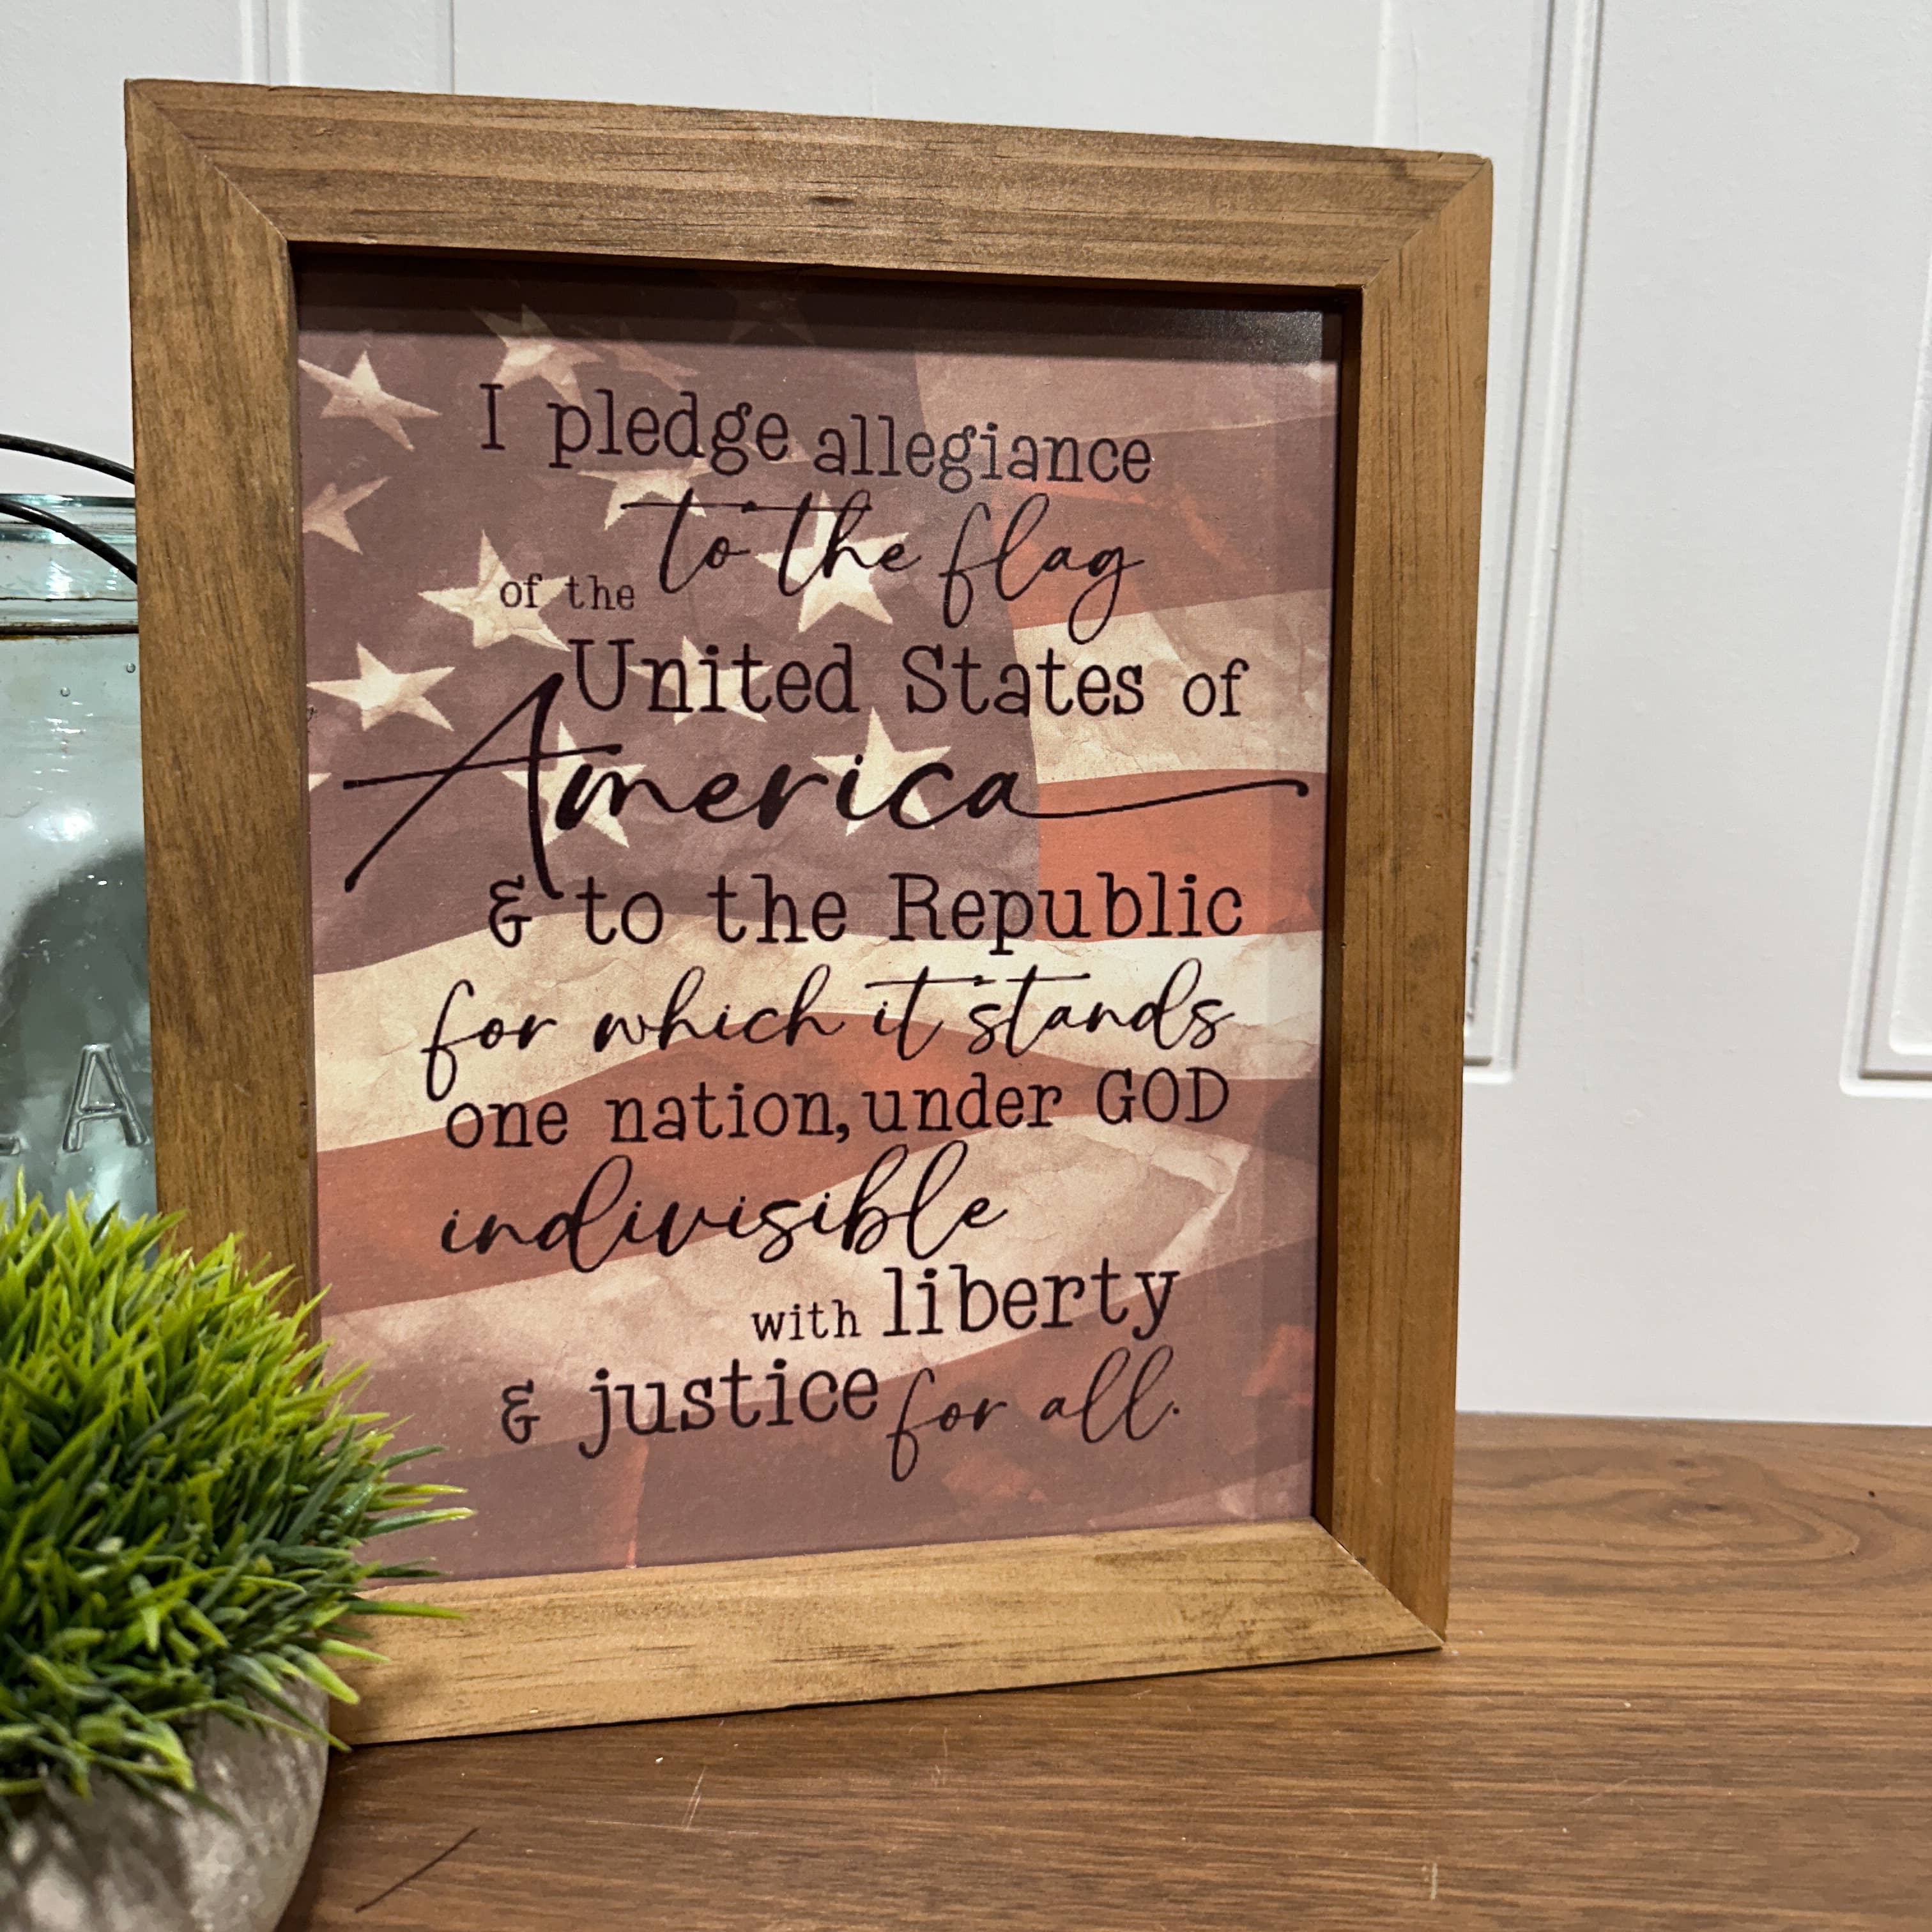 I pledge allegiance
to the flag
of the
United States of
America
& to the Republic
for which it stands
one nation, under GOD
indivisible
with liberty
& justice for all.